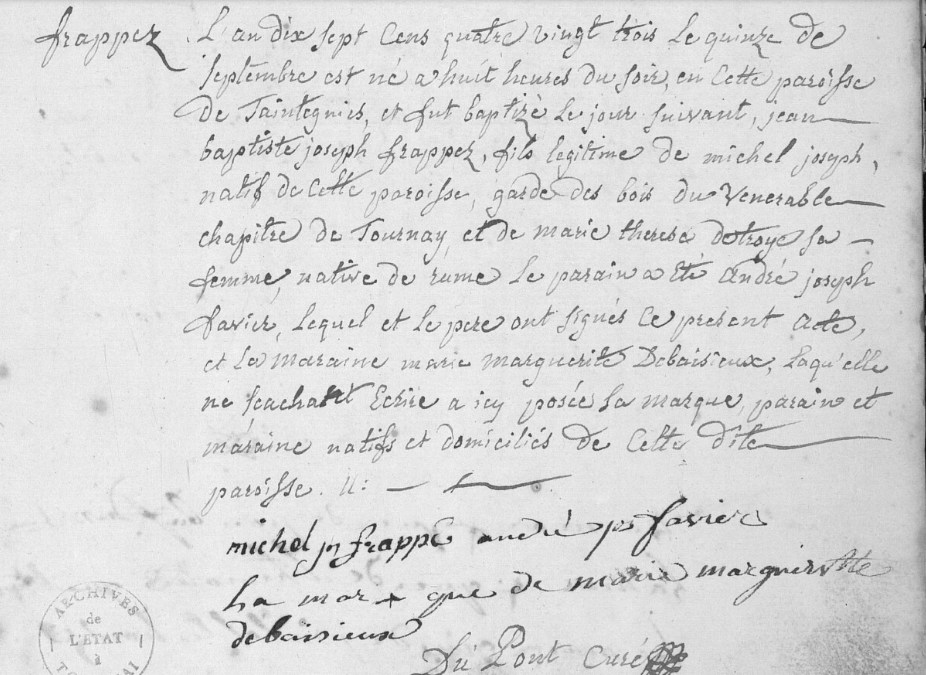 frappez
L'an dix sept cens quatre vingt trois le quinze de
septembre est né a huit heures du soir, en cette paroisse
de Taintegnies, et fut baptizé le jour suivant, jean
baptiste joseph frappez, fils legitime de michel joseph,
natif de cette paroisse, garde des bois du Venerable
chapitre de Tournay, et de marie theresa detroye sa
femme, native de rume le parain a eté andré joseph
favier, lequel et le pere ont signés ce present acte,
et la maraine marie marguerite Debaisieux, laqu'elle
ne scachant Ecrire a icy posée sa marque, parain et
maraine natifs et domiciliés de cette dite
paroisse.
michel jph frappé andré jph favier
La mar + que de marie margueritte
debaisieux
Du Pont Curé
ARCHIVES
de
L'ETAT
à